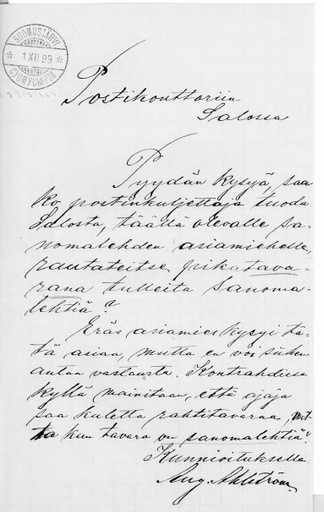 SUOMUSJÄRVI
1 XII 99
Postikonttoriin
Salossa
Pyydän kysyä, saa
ko postinkuljettaja tuoda
Salosta, täällä olevalle sa-
nomalehden asiamiehelle,
rautateitse, pikatava-
rana tulleita sanoma-
lehtiä?
Eräs asiamies kysyi tä-
tä asiaa, mutta en voi siihen
antaa vastausta. Kontrahdissa
kyllä mainitaan, että ajaja
saa kulettaa rahtitavaraa, mut-
ta kun tavara on sanomalehtiä?
Kunnioituksella
Aug. Ahlström.